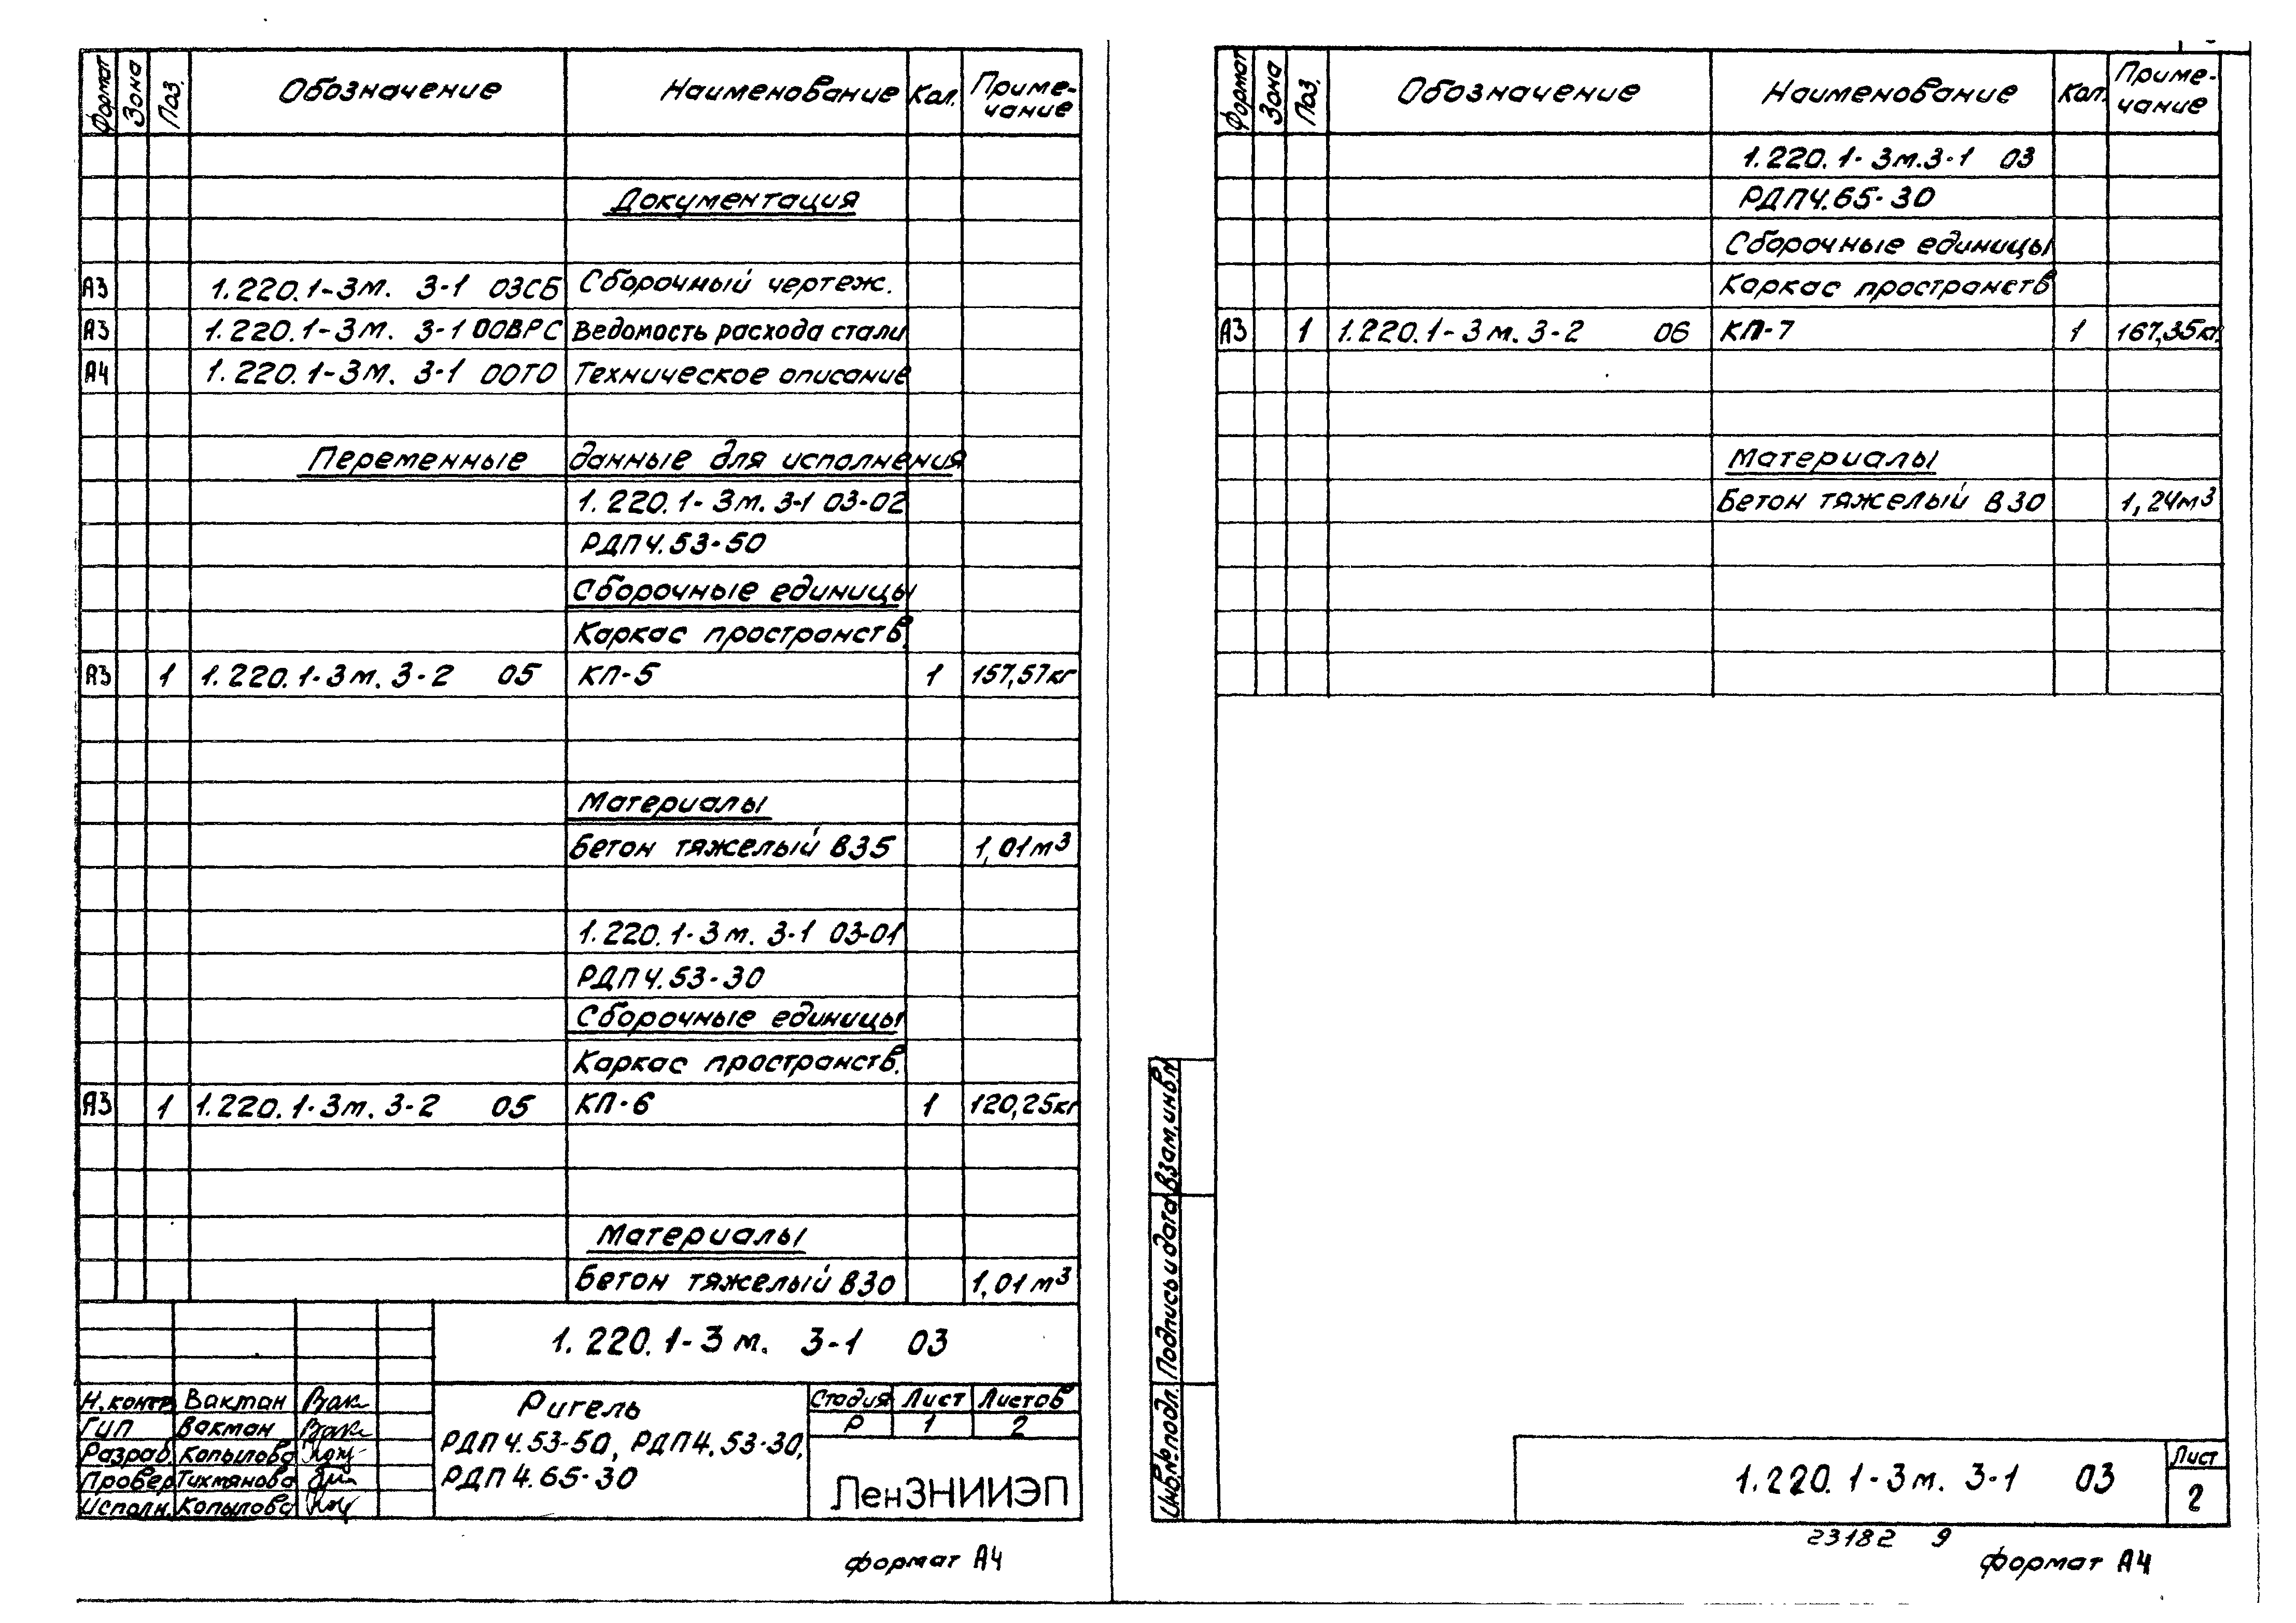 Формат Зона Поз. Обозначение Наименование Кол. Приме-
чание
Документация
А3 1.220.1-3м. 3-1 03СБ Сборочный чертеж.
А3 1.220.1-3м. 3-1 00ВРС Ведомость расхода стали
А4 1.220.1-3м. 3-1 00ТО Техническое описание
Переменные данные для исполнения
1.220.1-3м.3-1 03-02
РДП4.53-50
Сборочные единицы
Каркас пространств.
А3 1 1.220.1-3м.3-2 05 КП-5 1 157,57кг
Материалы
Бетон тяжелый В35 1,01м³
1.220.1-3м.3-1 03-01
РДП4.53-30
Сборочные единицы
Каркас пространств.
А3 1 1.220.1-3м.3-2 05 КП-6 1 120,25кг
Материалы
Бетон тяжелый В30 1,01м³
1.220.1-3м. 3-1 03
Н.контр. Вакман Вак
ГИП Вакман Вак
Разраб. Копылова
Провер. Тихмянова
Исполн. Копылова
Ригель
РДП4.53-50, РДП4.53-30,
РДП4.65-30
Стадия Лист Листов
Р 1 2
ЛенЗНИИЭП
формат А4
Формат Зона Поз. Обозначение Наименование Кол. Приме-
чание
1.220.1-3м.3-1 03
РДП4.65-30
Сборочные единицы
Каркас пространств
А3 1 1.220.1-3м.3-2 06 КП-7 1 167,35кг.
Материалы
Бетон тяжелый В30 1,24м³
Инв.№подл. Подпись и дата Взам.инв.№
1.220.1-3м. 3-1 03
Лист
2
23182 9
формат А4